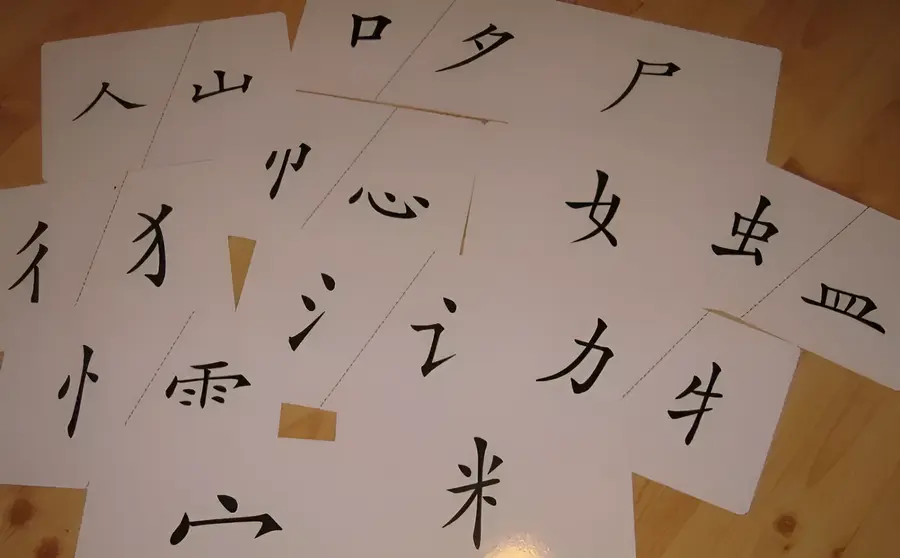 人 山
口 夕
尸
卩 心
女
虫 皿
彳 犭
氵 讠
力
牛
忄 雨
宀
米